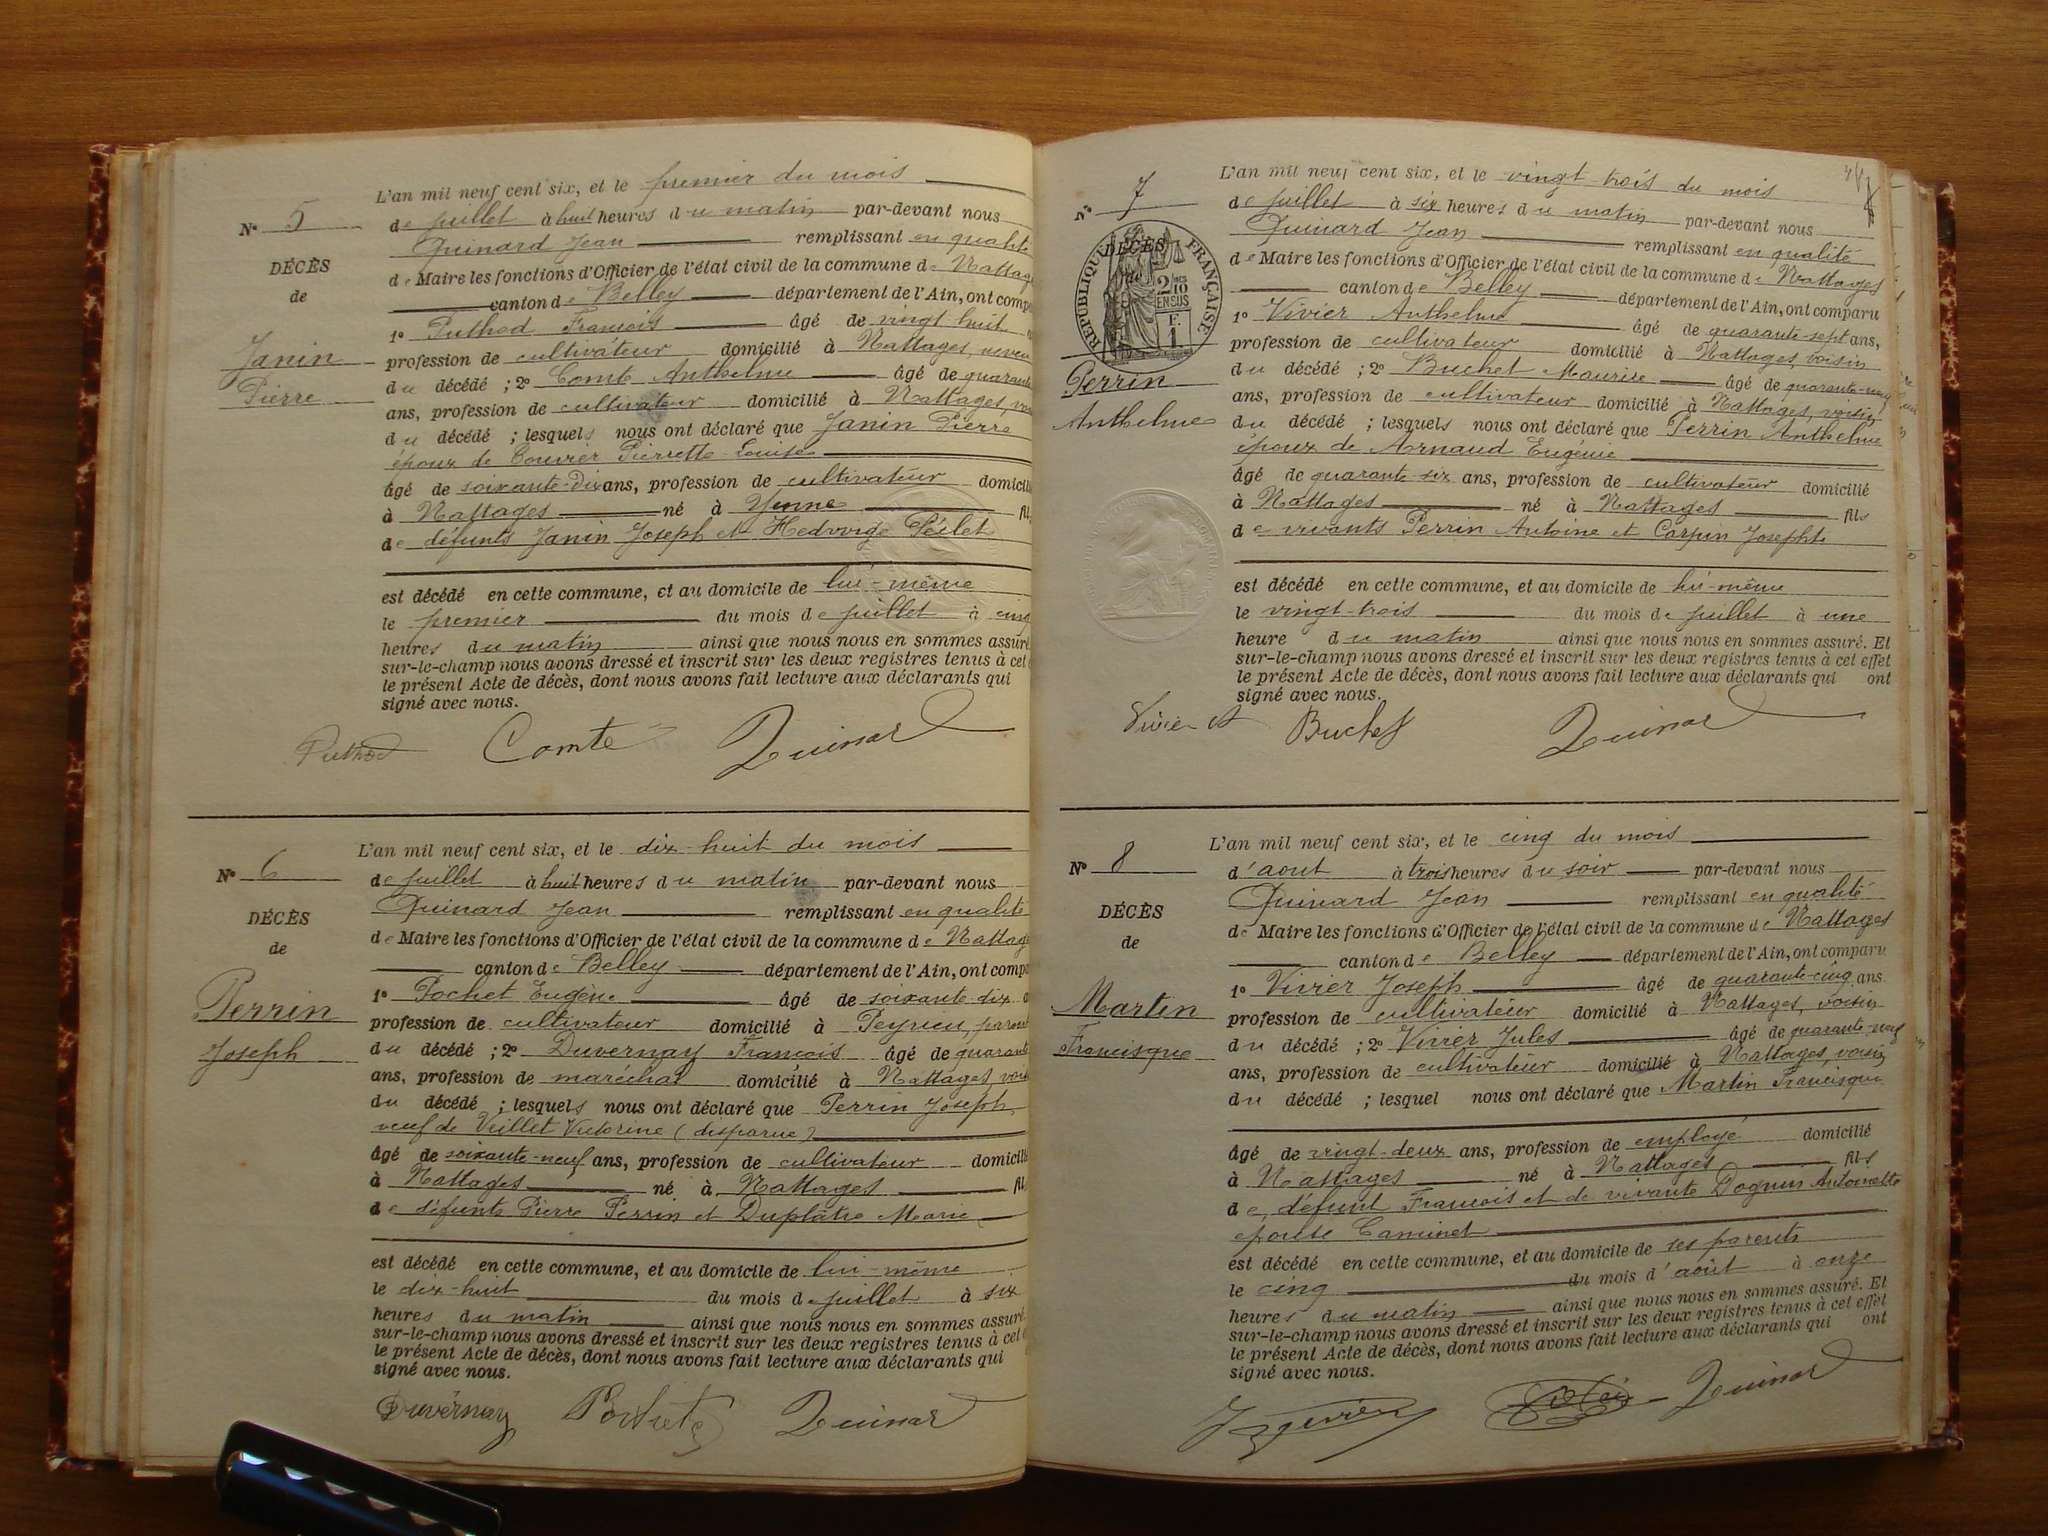 N° 5
DÉCÈS
de
Janin
Pierre
L'an mil neuf cent six, et le premier du mois
de juillet à huit heures du matin par-devant nous
Quinard Jean remplissant en qualité
de Maire les fonctions d'Officier de l'état civil de la commune de Nattag
canton de Belley département de l'Ain, ont compa
1° Puthod François âgé de vingt huit
profession de cultivateur domicilié à Nattages, neveu
du décédé ; 2° Comte Anthelme âgé de quarante
ans, profession de cultivateur domicilié à Nattages, voi
du décédé ; lesquels nous ont déclaré que Janin Pierre
époux de Couvier Pierrette Louise
âgé de soixante-dix ans, profession de cultivateur domicili
à Nattages né à Yenne fils
de défunts Janin Joseph et Hedwige Péilet
est décédé en cette commune, et au domicile de lui-même
le premier du mois de juillet à cinq
heures du matin ainsi que nous nous en sommes assuré
sur-le-champ nous avons dressé et inscrit sur les deux registres tenus à cet
le présent Acte de décès, dont nous avons fait lecture aux déclarants qui
signé avec nous.
Puthod Comte Quinard
N° 6
DÉCÈS
de
Perrin
Joseph
L'an mil neuf cent six, et le dix-huit du mois
de juillet à huit heures du matin par-devant nous
Quinard Jean remplissant en qualité
de Maire les fonctions d'Officier de l'état civil de la commune de Nattag
canton de Belley département de l'Ain, ont compa
1° Pochet Eugène âgé de soixante-dix
profession de cultivateur domicilié à Peyrieu, paren
du décédé ; 2° Duvernay François âgé de quarante
ans, profession de maréchal domicilié à Nattages, vois
du décédé ; lesquels nous ont déclaré que Perrin Joseph
veuf de Veillet Victorine (disparue)
âgé de soixante-neuf ans, profession de cultivateur domicilié
à Nattages né à Nattages fils
de défunts Pierre Perrin et Duplâtre Marie
est décédé en cette commune, et au domicile de lui-même
le dix-huit du mois de juillet à six
heures du matin ainsi que nous nous en sommes assuré
sur-le-champ nous avons dressé et inscrit sur les deux registres tenus à cet
le présent Acte de décès, dont nous avons fait lecture aux déclarants qui
signé avec nous.
Duvernay Quinard
N° 7
DÉCÈS
de
RÉPUBLIQUE FRANÇAISE
2/10 EN SUS
F. 1
Perrin
Anthelme
L'an mil neuf cent six, et le vingt-trois du mois
de juillet à six heures du matin par-devant nous
Quinard Jean remplissant en qualité
de Maire les fonctions d'Officier de l'état civil de la commune de Nattages
canton de Belley département de l'Ain, ont comparu
1° Vivier Anthelme âgé de quarante-sept ans,
profession de cultivateur domicilié à Nattages, voisin
du décédé ; 2° Buchet Maurise âgé de quarante-neuf
ans, profession de cultivateur domicilié à Nattages, voisin
du décédé ; lesquels nous ont déclaré que Perrin Anthelme
époux de Arnaud Eugénie
âgé de quarante-six ans, profession de cultivateur domicilié
à Nattages né à Nattages fils
de vivants Perrin Antoine et Carpin Josephte
est décédé en cette commune, et au domicile de lui-même
le vingt-trois du mois de juillet à une
heure du matin ainsi que nous nous en sommes assuré. Et
sur-le-champ nous avons dressé et inscrit sur les deux registres tenus à cet effet
le présent Acte de décès, dont nous avons fait lecture aux déclarants qui ont
signé avec nous.
Vivier A Buchet Quinard
N° 8
DÉCÈS
de
Martin
Francisque
L'an mil neuf cent six, et le cinq du mois
d'aout à trois heures du soir par-devant nous
Quinard Jean remplissant en qualité
de Maire les fonctions d'Officier de l'état civil de la commune de Nattages
canton de Belley département de l'Ain, ont comparu
1° Vivier Joseph âgé de quarante-cinq ans
profession de cultivateur domicilié à Nattages, voisin
du décédé ; 2° Vivier Jules âgé de quarante-neuf
ans, profession de cultivateur domicilié à Nattages, voisin
du décédé ; lesquel nous ont déclaré que Martin Francisque
âgé de vingt-deux ans, profession de employé domicilié
à Nattages né à Nattages fils
de défunt François et de vivante Doguin Antoinette
épouse Caminet
est décédé en cette commune, et au domicile de ses parents
le cinq du mois d'août à onze
heures du matin ainsi que nous nous en sommes assuré. Et
sur-le-champ nous avons dressé et inscrit sur les deux registres tenus à cet effet
le présent Acte de décès, dont nous avons fait lecture aux déclarants qui ont
signé avec nous.
Quinard